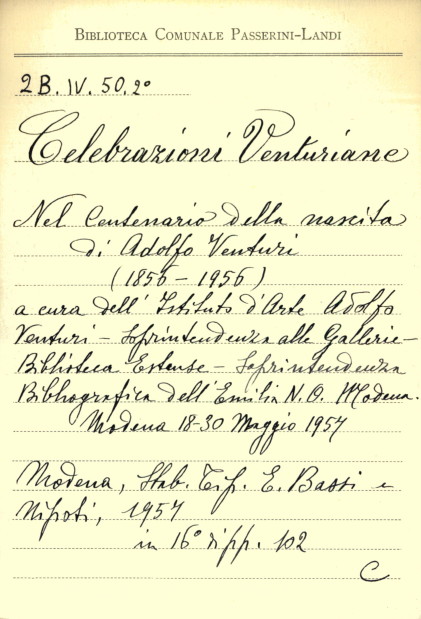 BIBLIOTECA COMUNALE PASSERINI-LANDI
2B.IV.50.2°
Celebrazioni Venturiane
Nel Centenario della nascita
di Adolfo Venturi
(1856-1956)
a cura dell'Istituto d'Arte Adolfo
Venturi - Soprintendenza alle Gallerie -
Biblioteca Estense - Soprintendenza
Bibliografica dell'Emilia N.O. Modena.
Modena 18-30 Maggio 1957
Modena, Stab. Tip. E. Bassi e
Nipoti, 1957
in 16° di pp. 102
C